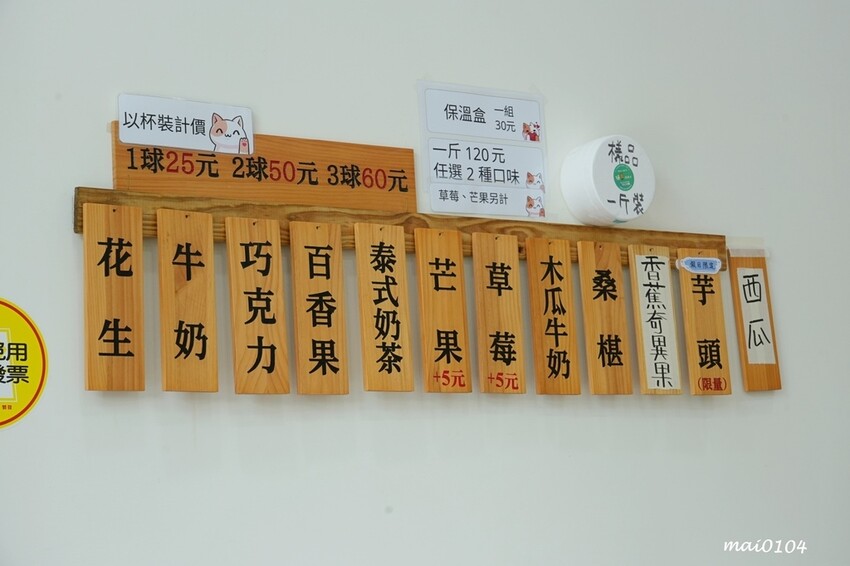 以杯裝計價
1球25元 2球50元 3球60元
保溫盒 一組
30元
一斤 120 元
任選 2 種口味
草莓、芒果另計
樣品
一斤裝
花生
牛奶
巧克力
百香果
泰式奶茶
芒果
+5元
草莓
+5元
木瓜牛奶
桑椹
香蕉奇異果
芋頭
(限量)
西瓜
用
發票
mai0104